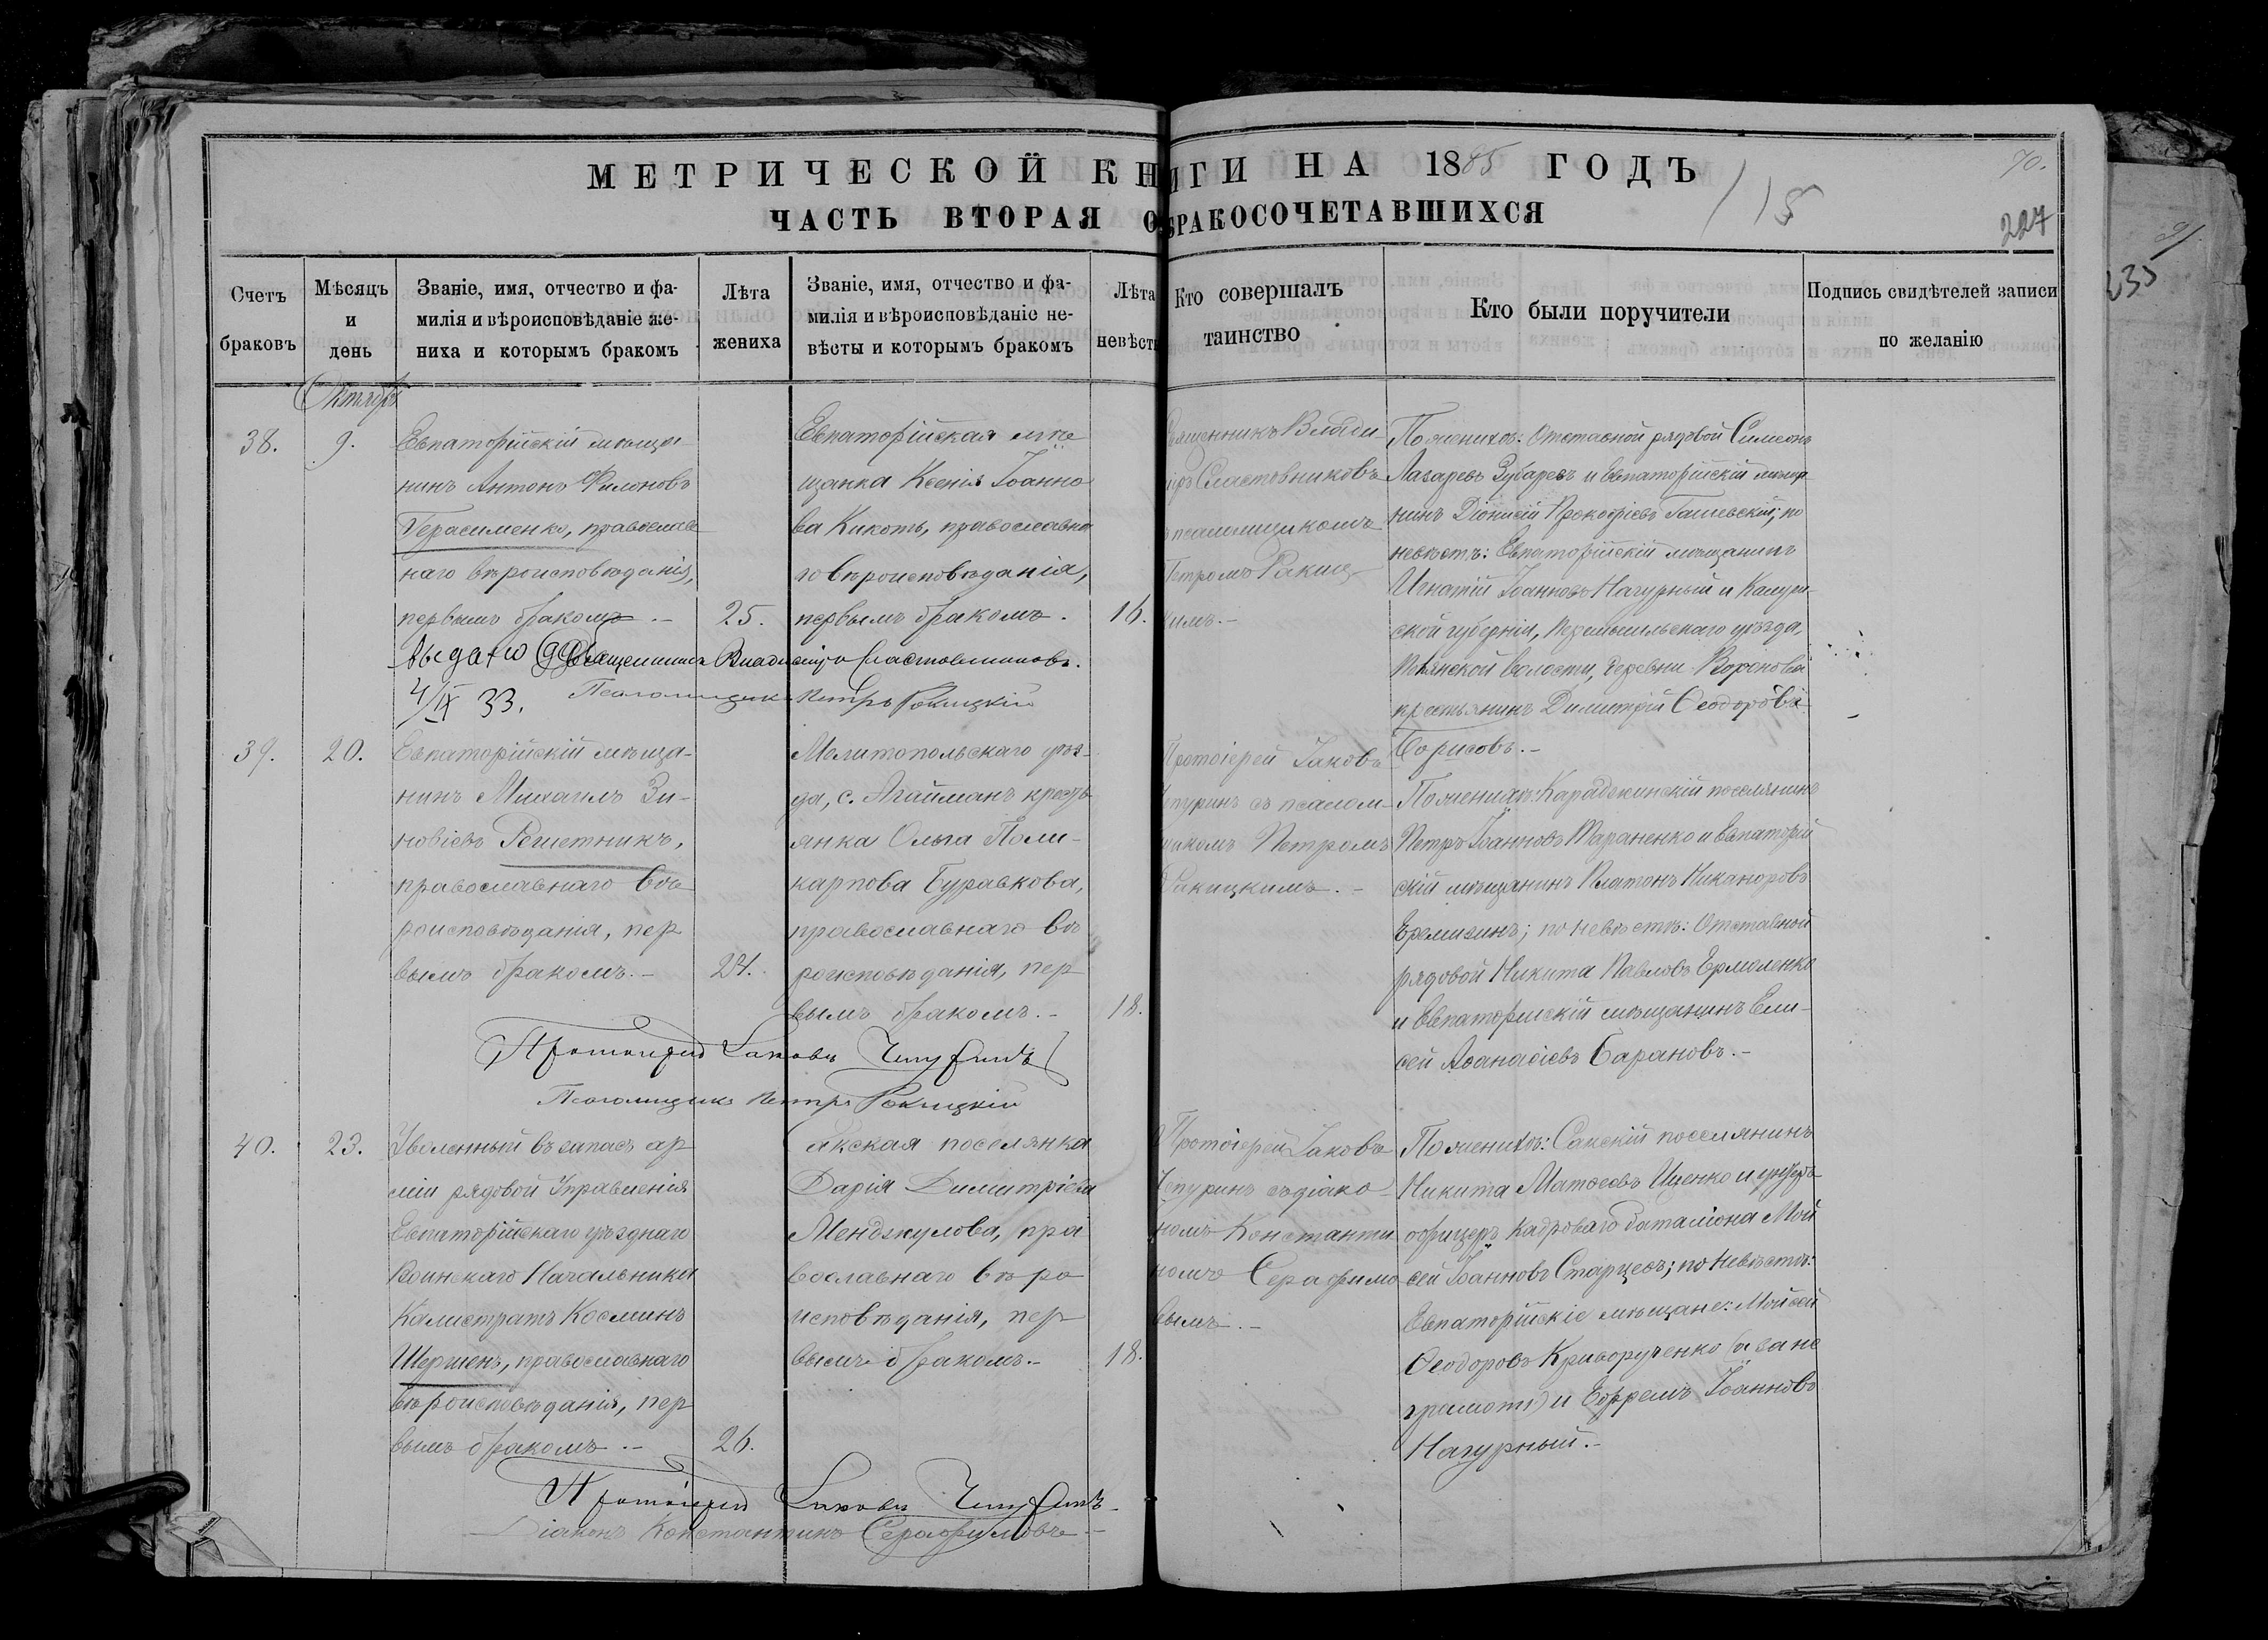 МЕТРИЧЕСКОЙ КНИГИ НА 1885 ГОДЪ
ЧАСТЬ ВТОРАЯ О БРАКОСОЧЕТАВШИХСЯ
115
70.
227
235
Счетъ
браковъ
Мѣсяцъ
и
день
Званіе, имя, отчество и фа-
милія и вѣроисповѣданіе же-
ниха и которымъ бракомъ
Лѣта
жениха
Званіе, имя, отчество и фа-
милія и вѣроисповѣданіе не-
вѣсты и которымъ бракомъ
Лѣта
невѣсты
Кто совершалъ
таинство
Кто были поручители
Подпись свидѣтелей записи
по желанію
Октябрь
38.
9.
Евпаторійскій мѣща
нинъ Антонъ Филоновъ
Герасименко, православ
наго вѣроисповѣданія,
первымъ бракомъ.-
25.
Евпаторійская мѣ
щанка Ксенія Іоанно
ва Кикоть, православна
го вѣроисповѣданія,
первымъ бракомъ.
16.
Священникъ Влади-
міръ Сластовниковъ
съ псаломщикомъ
Петромъ Ракиц
кимъ.-
По женихѣ: Отставной рядовой Симеонъ
Лазаревъ Зубаревъ и Евпаторійскій мѣща
нинъ Діонисій Прокофіевъ Гашевскій; по
невѣстѣ: Евпаторійскій мѣщанинъ
Игнатій Іоанновъ Нагурный и Калуж-
ской губерніи, Перемышльскаго уѣзда,
волости, деревни
крестьянинъ Димитрій Ѳеодоровъ
Борисовъ.-
Выдано
Священникъ Владиміръ Сластовниковъ.
4/IX 33.
Псаломщикъ Петръ Ракицкій
39.
20.
Евпаторійскій мѣща-
нинъ Михаилъ Зи-
новіевъ Решетникъ,
православнаго вѣ
роисповѣданія, пер
вымъ бракомъ.-
24.
Мелитопольскаго уѣз-
да, с. Агайманъ кресть
янка Ольга Поли-
карпова Буравкова,
православнаго вѣ
роисповѣданія, пер
вымъ бракомъ.-
18.
Протоіерей Іаковъ
Чепуринъ съ псалом-
щикомъ Петромъ
Ракицкимъ.-
По женихѣ: поселянинъ
Петръ Іоанновъ Тараненко и Евпаторій
скій мѣщанинъ Платонъ Никаноровъ
Еремизинъ; по невѣстѣ: Отставной
рядовой Никита Павловъ Ермоленко
и Евпаторійскій мѣщанинъ Ели-
сей Аѳанасіевъ Барановъ.-
Протоіерей Іаковъ Чепуринъ
Псаломщикъ Петръ Ракицкій
40.
23.
Уволенный въ запасъ ар
міи рядовой Управленія
Евпаторійскаго уѣзднаго
Воинскаго Начальника
Калистратъ Косминъ
Шершень, православнаго
вѣроисповѣданія, пер
вымъ бракомъ.-
26.
Сакская поселянка
Дарія Димитріева
Менджулова, пра
вославнаго вѣро
исповѣданія, пер
вымъ бракомъ.-
18.
Протоіерей Іаковъ
Чепуринъ съ діако-
номъ Константи
номъ Серафимо
вымъ.-
По женихѣ: Сакскій поселянинъ
Никита Матѳеевъ Ищенко и унтеръ
офицеръ кадроваго баталіона Мой
сей Іоанновъ Старцевъ; по невѣстѣ:
Евпаторійскіе мѣщане: Мойсей
Ѳеодоровъ Криворученко (а за не
грамоти) и Ефремъ Іоанновъ
Нагурный.-
Протоіерей Іаковъ Чепуринъ
Діаконъ Константинъ Серафимовъ